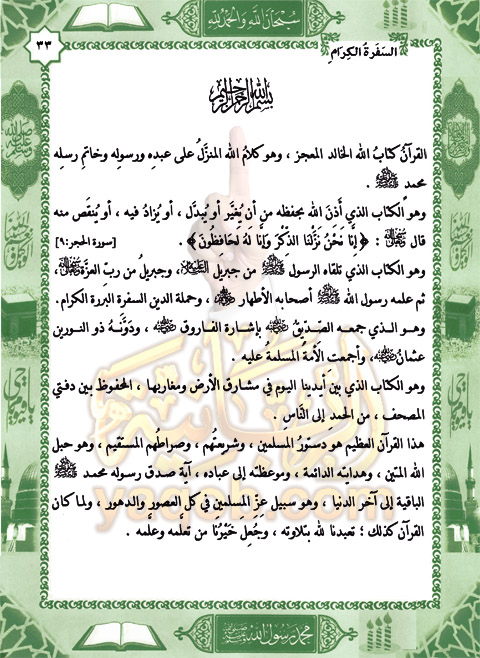 سبحان الله والحمد لله
٣٣
السفرة الكرام
بسم الله الرحمن الرحيم
القرآنُ كتابُ الله الخالد المعجز ، وهو كلامُ الله المنزَّلُ على عبدِهِ ورسولِه وخاتمِ رسلِه
محمدٍ ﷺ .
وهو الكتاب الذي أَذنَ اللَّه بحفظه من أن يُغيَّر أو يُبدَّل ، أو يُزادُ فيه ، أو يُنقَص منه
قال : ﴿ إِنَّا نَحْنُ نَزَّلْنَا الذِّكْرَ وَإِنَّا لَهُ لَحَافِظُونَ ﴾ . [سورة الحجر:٩]
وهو الكتاب الذي تلقاه الرسول ﷺ من جبريل ، وجبريلُ من ربِّ العزَّة ،
ثم علمه رسول الله ﷺ أصحابه الأطهار ، وحملة الدين السفرة البررة الكرام.
وهـو الـذي جمعـه الصدِّيقُ بإشارة الفاروق ، ودوَّنَـهُ ذو النـورين
عثمانُ ، وأجمعت الأُمةُ المسلمةُ عليه .
وهو الكتاب الذي بين أيدينا اليوم في مشارق الأرض ومغاربها ، المحفوظ بين دفتي
المصحف ، من الحمدِ إلى النَّاسِ .
هذا القرآن العظيم هو دستورُ المسلمين ، وشريعتُهم ، وصراطُهم المستقيم ، وهو حبل
الله المتين ، وهدايتُه الدائمة ، وموعظتُه إلى عباده ، آية صدق رسوله محمد ﷺ
الباقية إلى آخر الدنيا ، وهو سبيل عزِّ المسلمين في كل العصور والدهور ، ولما كان
القرآن كذلك ؛ تعبدنا لله بتلاوته ، وجُعِلَ خَيْرُنَا من تعلَّمه وعلَّمه .
yaqob.com
محمد رسول الله